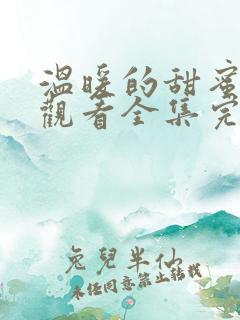 溫暖的甜蜜
觀看全集完
兔兒半仙
未经同意禁止转载